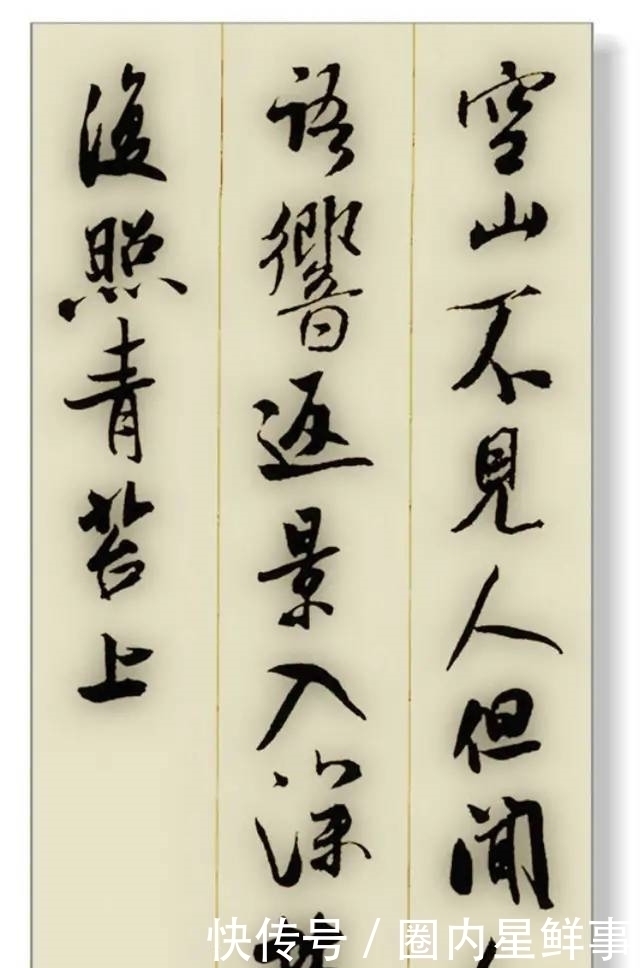 空山不見人但聞
語響返景入深
復照青苔上
快传号/圈内星鲜事